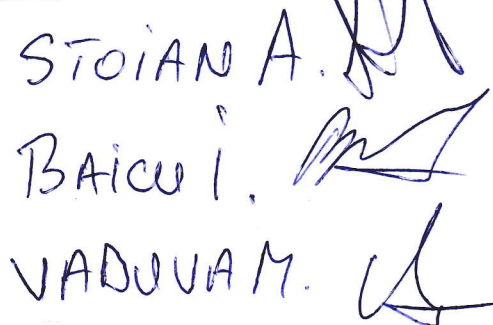 STOIAN A.
BAICU I.
VADUVA M.